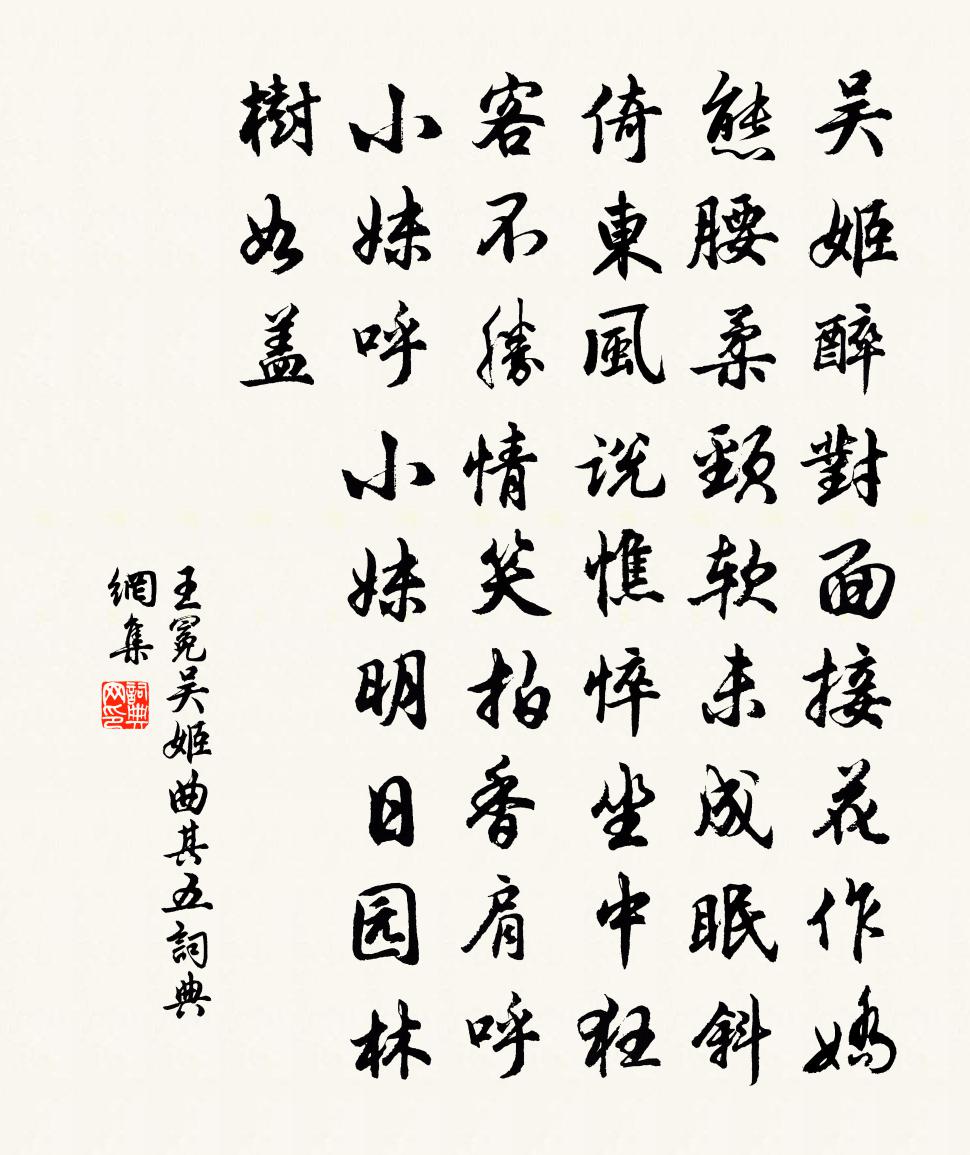 吴姬醉對面接花作嬌
態腰柔頸软未成眠斜
倚東風说憔悴坐中狂
客不勝情笑拍香肩呼
小妹呼小妹明日园林
樹如盖
王冕吴姬曲其五詞典
網集
詞典网印